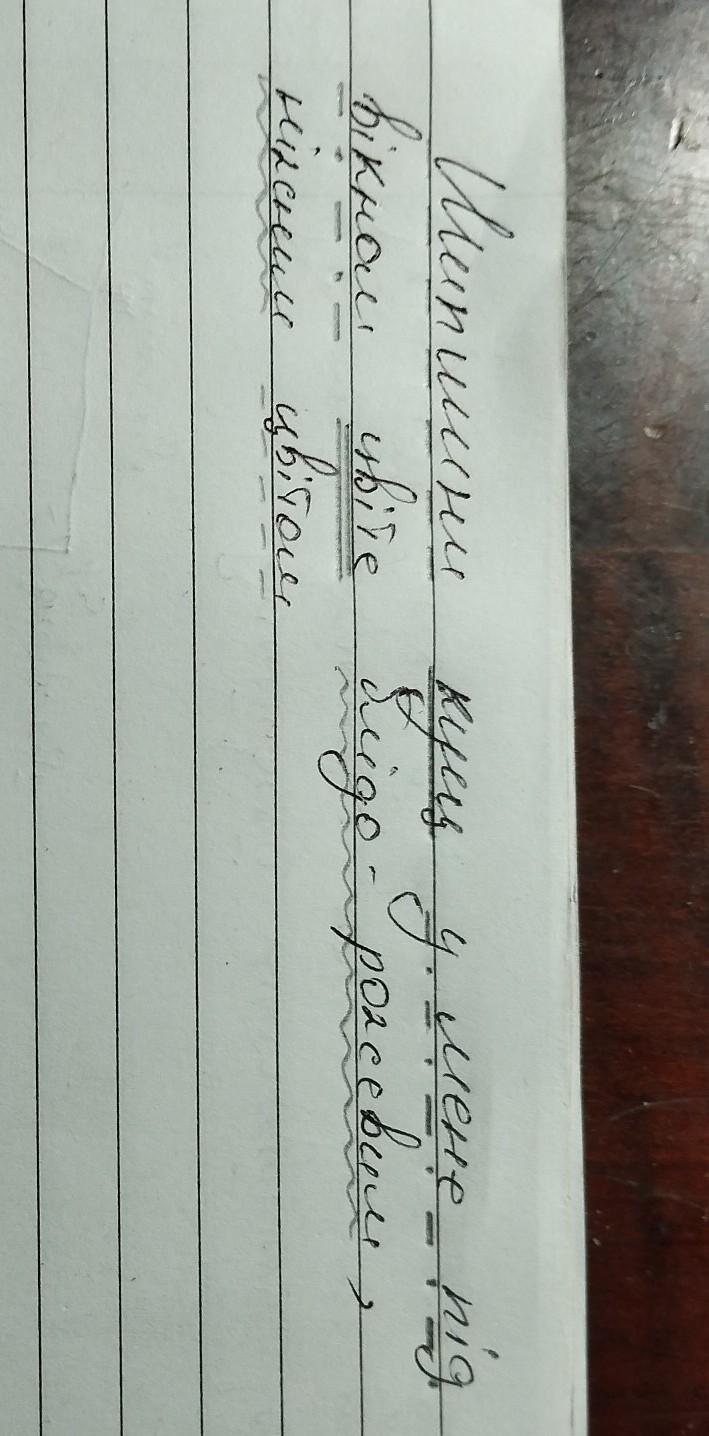 Шипшини кущ у мене під
вікном цвіте блідо-рожевим,
ніжним цвітом